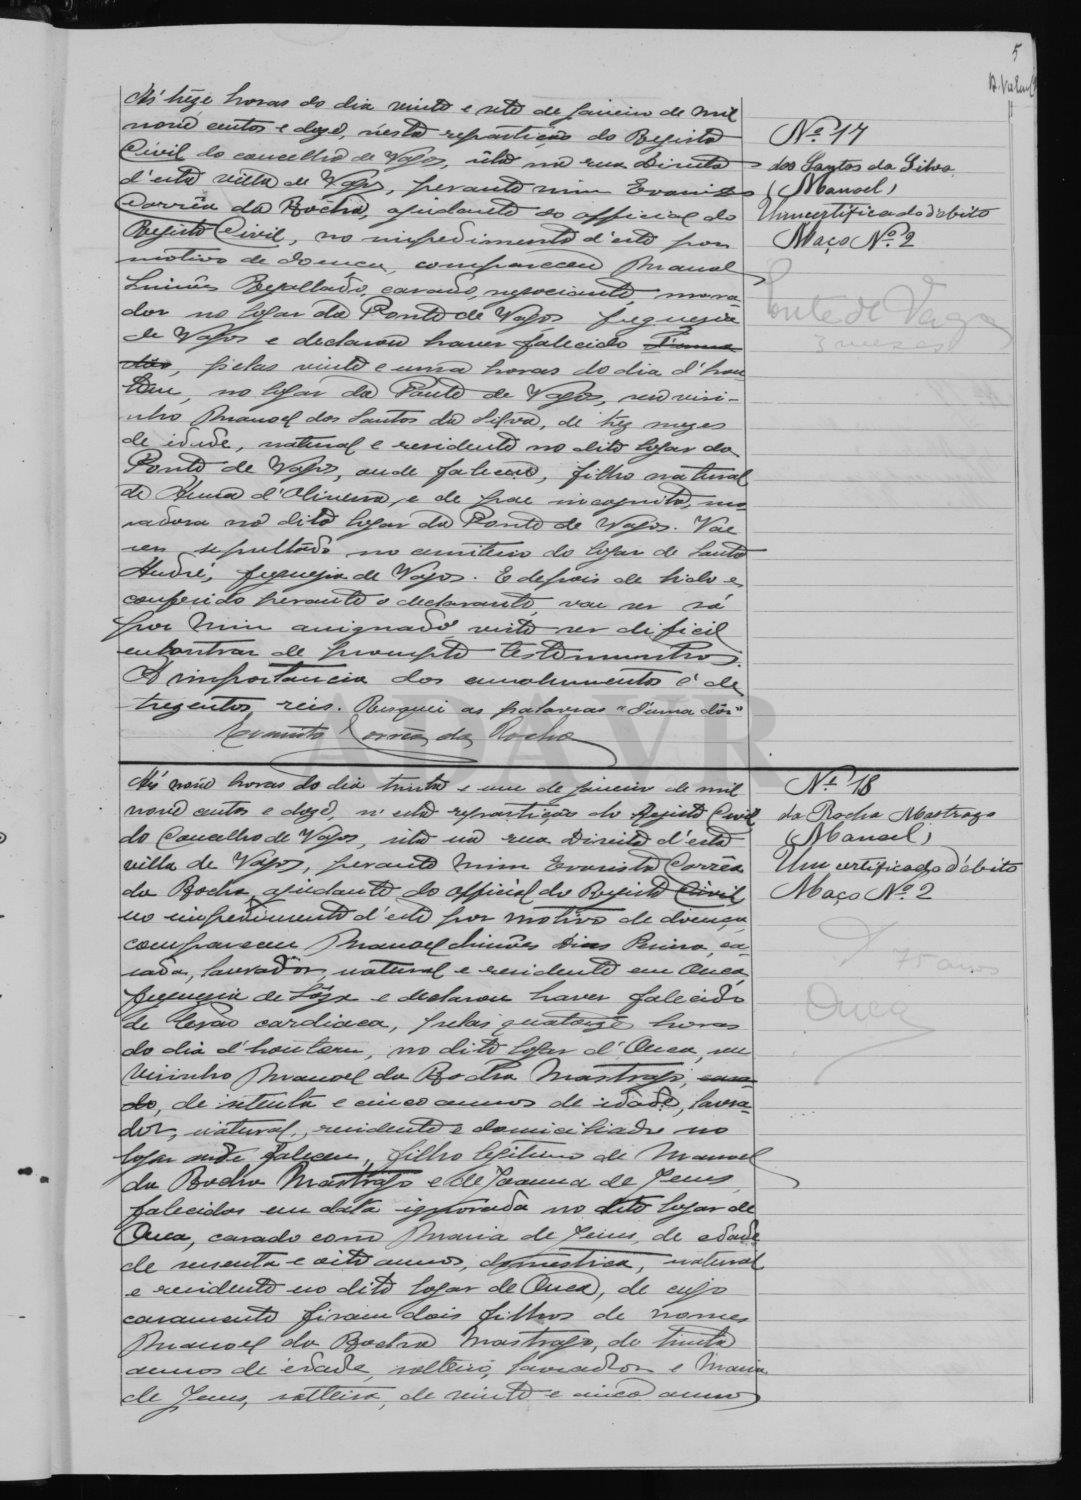 5
Ás treze horas do dia vinte e sete de janeiro de mil
nove centos e doze, n'esta repartição do Registo
Civil do concelho de Vagos, sita na rua Direita
d'esta villa de Vagos, perante mim Evaristo
Corrêa da Rocha, ajudante do official do
Registo Civil, no impedimento d'este por
motivo de doença, compareceu Manoel
Simões Repallado, casado, negociante, mora-
dor no logar da Ponte de Vagos freguezia
de Vagos e declarou haver falecido d'uma
dôr, pelas vinte e uma horas do dia d'hon-
tem, no logar da Ponte de Vagos, seu visi-
nho Manoel dos Santos da Silva, de trez mezes
de idade, natural e residente no dito logar da
Ponte de Vagos, onde faleceu, filho natural
de d'Oliveira, e de pae incognito, mo-
radora no dito logar da Ponte de Vagos. Vae
ser sepultado no cemiterio do logar de Santo
André, freguezia de Vagos. E depois de lido e
conferido perante o declarante, vae ser só
por mim assignado visto ser dificil
encontrar de prompto testemunhas.
A importancia dos emolumentos é de
trezentos reis. Risquei as palavras "d'uma dôr"
Evaristo Corrêa da Rocha
Nº 17
dos Santos da Silva
(Manoel)
Um certificado d'obito
Maço Nº 2
Ponte de Vagos
3 mezes
Ás nove horas do dia trinta e um de janeiro de mil
nove centos e doze, n'esta repartição do Registo Civil
do Concelho de Vagos, sita na rua Direita d'esta
villa de Vagos, perante mim Evaristo Corrêa
da Rocha, ajudante do official do Registo Civil
no impedimento d'este por motivo de doença,
compareceu Manoel Simões Dias, ca-
sado, lavrador, natural e residente em Ouca,
freguezia de Sôza e declarou haver falecido
de lesão cardiaca, pelas quatorze horas
do dia d'hontem, no dito logar d'Ouca, seu
visinho Manoel da Rocha Mastrago, casa-
do, de setenta e cinco annos de idade, lavra-
dor, natural, residente e domiciliado no
logar onde faleceu, filho legitimo de Manoel
da Rocha Mastrago e de Joanna de Jesus,
falecidos em data ignorada no dito logar de
Ouca, casado com Maria de Jesus, de edade
de sessenta e oito annos, domestica, natural
e residente no dito logar de Ouca, de cujo
casamento ficam dois filhos de nomes
Manoel da Rocha Mastrago, de trinta
annos de edade, solteiro, lavrador e Maria
de Jesus, solteira, de vinte e cinco annos
Nº 18
da Rocha Mastrago
(Manoel)
Um certificado d'obito
Maço Nº 2
75 anos
Ouca
ADAVR